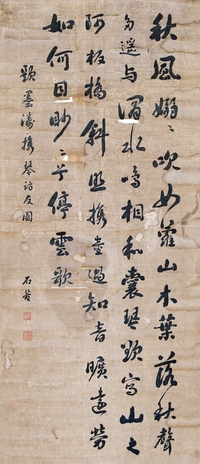 秋風嫋嫋吹女蘿山木葉落秋聲
多遥与澗水鳴相和囊琴欲寫山之
阿板橋斜照攜壺過知音曠遠勞
如何目眇眇兮停雲歌
題墨濤攜琴訪友圖
石